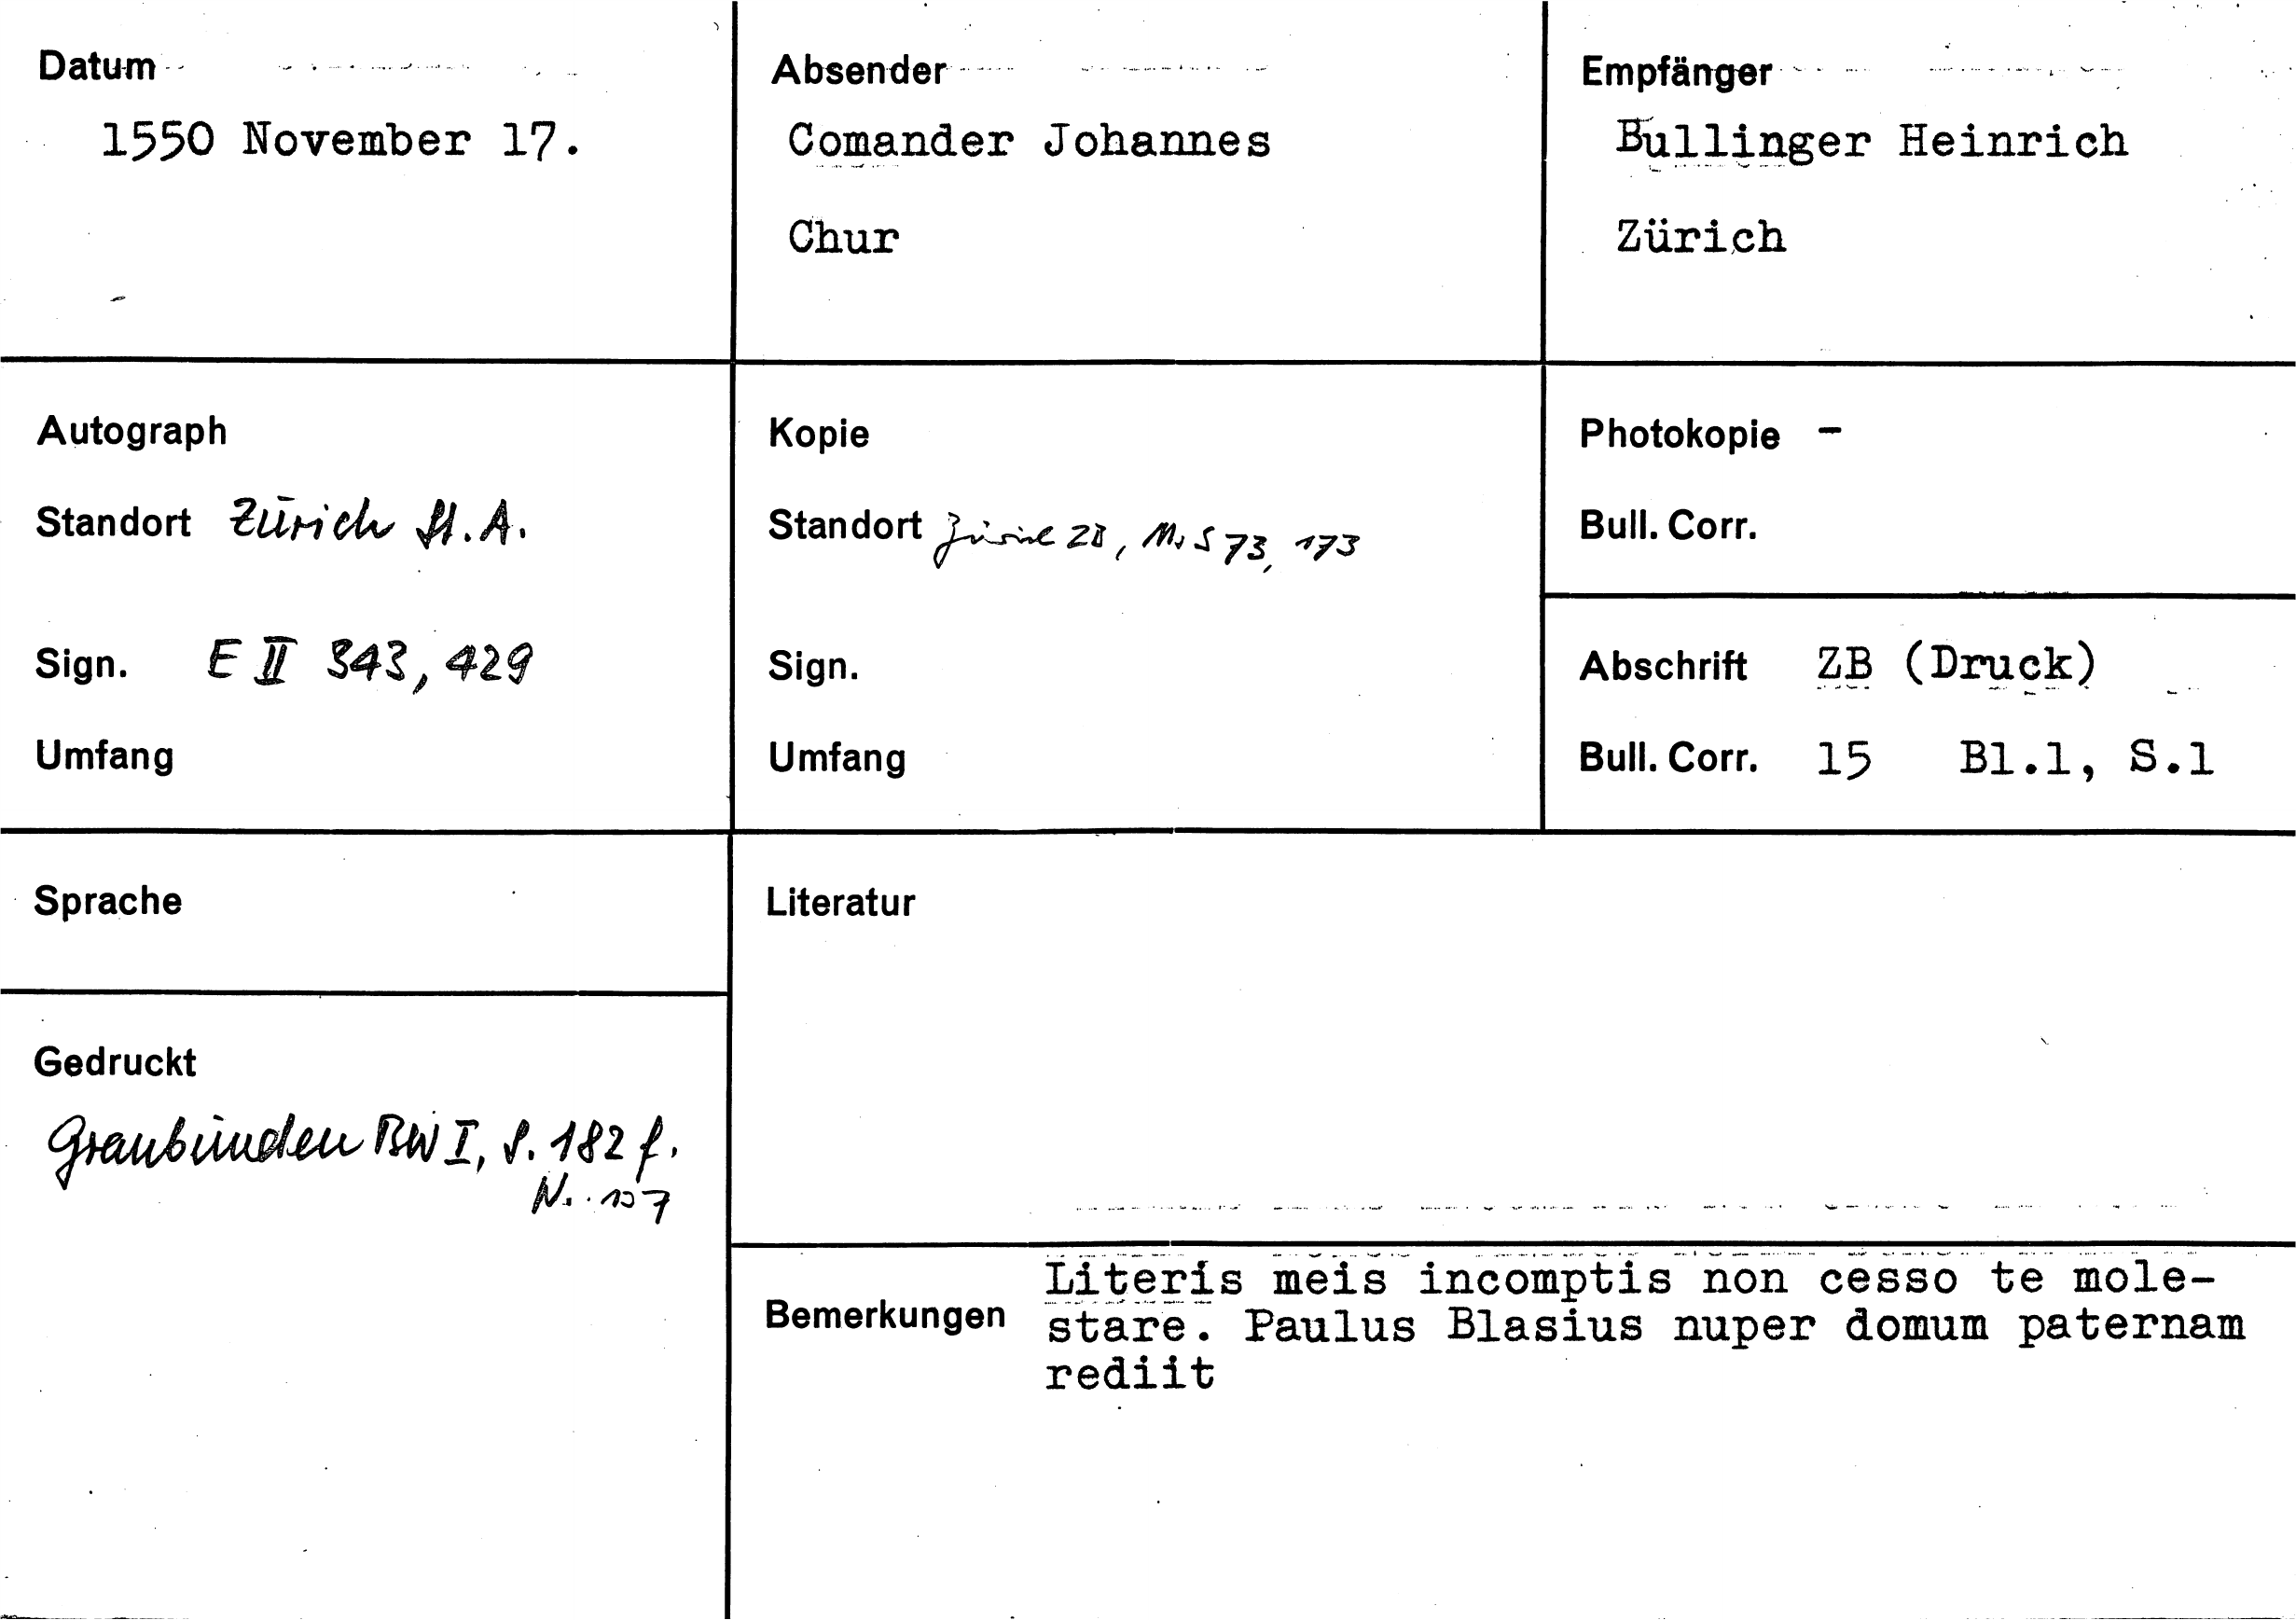 Datum
1550 November 17.
Absender
Comander Johannes
Chur
Empfänger
Bullinger Heinrich
Zürich
Autograph
Standort Zürich St.A.
Sign. E II 343, 429
Umfang
Kopie
Standort Zürich ZB, Ms S 73, 173
Sign.
Umfang
Photokopie -
Bull. Corr.
Abschrift ZB (Druck)
Bull. Corr. 15 Bl.1, S.1
Sprache
Gedruckt
Graubünden BW I, S. 182 f.
N. 137
Literatur
Bemerkungen
Literis meis incomptis non cesso te mole-
stare. Paulus Blasius nuper domum paternam
rediit